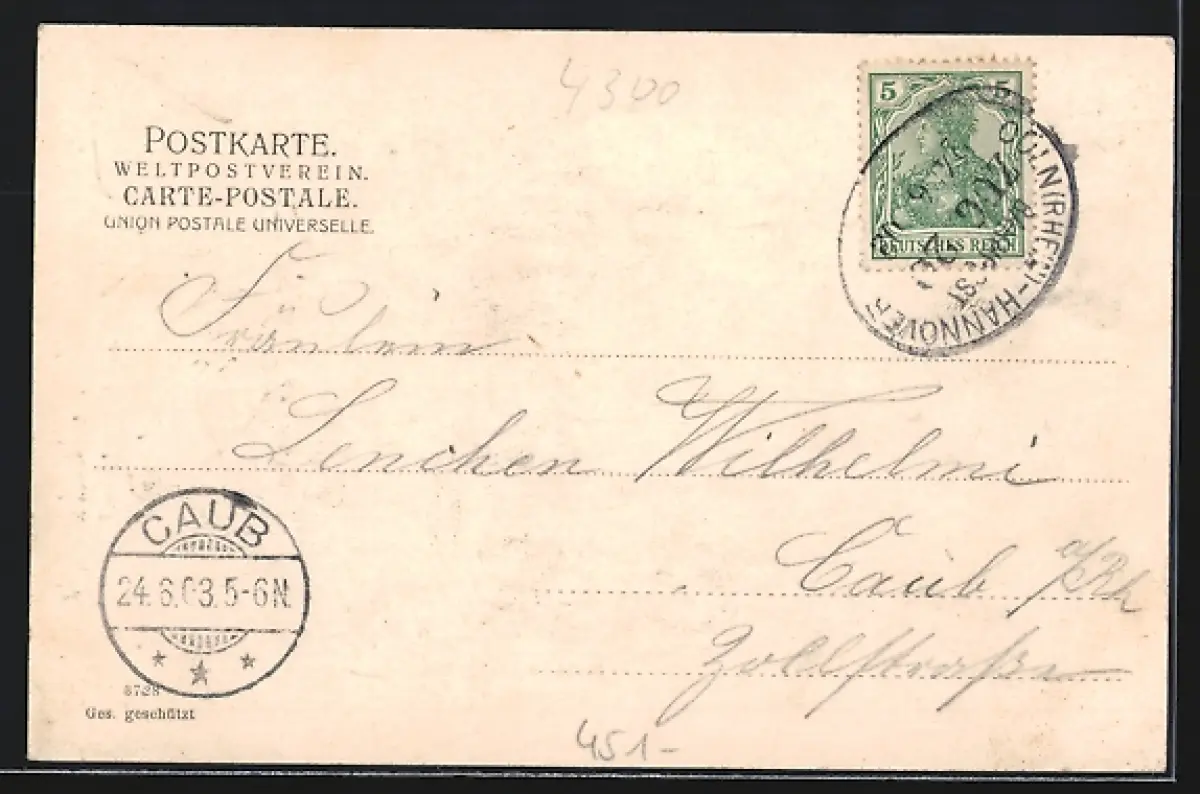 4300
POSTKARTE.
WELTPOSTVEREIN.
CARTE-POSTALE.
UNION POSTALE UNIVERSELLE.
5 5
DEUTSCHES REICH
CÖLN (RHEIN)-HANNOVER
BAHNPOST
ZUG
Fräulein
Lenchen Wilhelmi
Caub a/Rh
Zollstraße
CAUB
24.6.03.5-6N.
8728
Ges. geschützt
451-